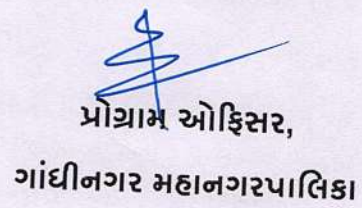 પ્રોગ્રામ ઓફિસર,
ગાંધીનગર મહાનગરપાલિકા